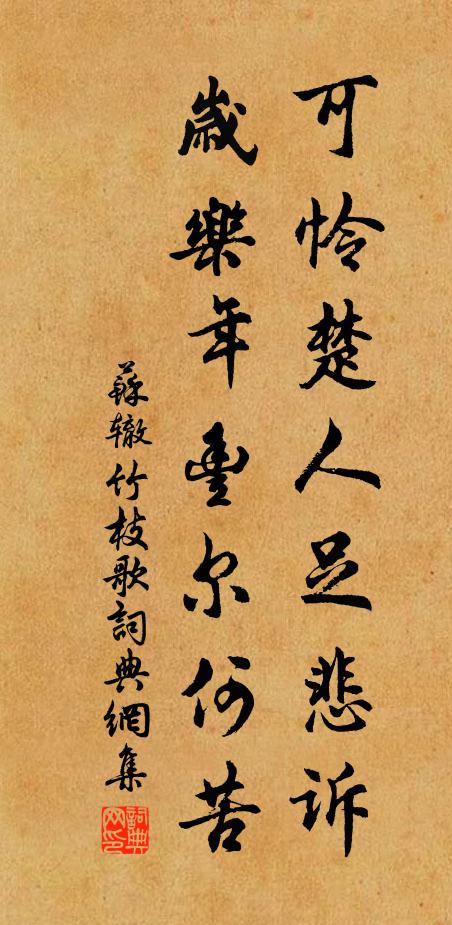 可怜楚人足悲诉
歲樂年豐尔何苦
蘇辙竹枝歌詞典網集
詞典网印